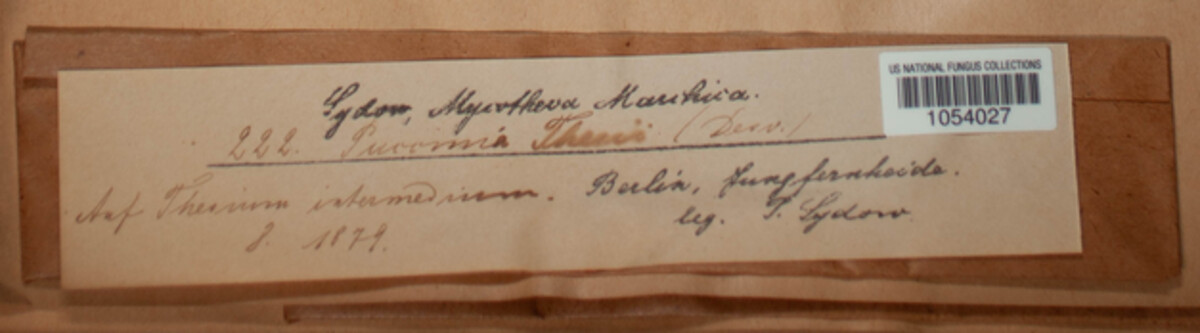 Sydow, Mycotheca Marchica.
222. Puccinia Thesii (Desv.)
Auf Thesium intermedium. Berlin, Jungfernheide.
8. 1879. leg. P. Sydow
US NATIONAL FUNGUS COLLECTIONS
1054027